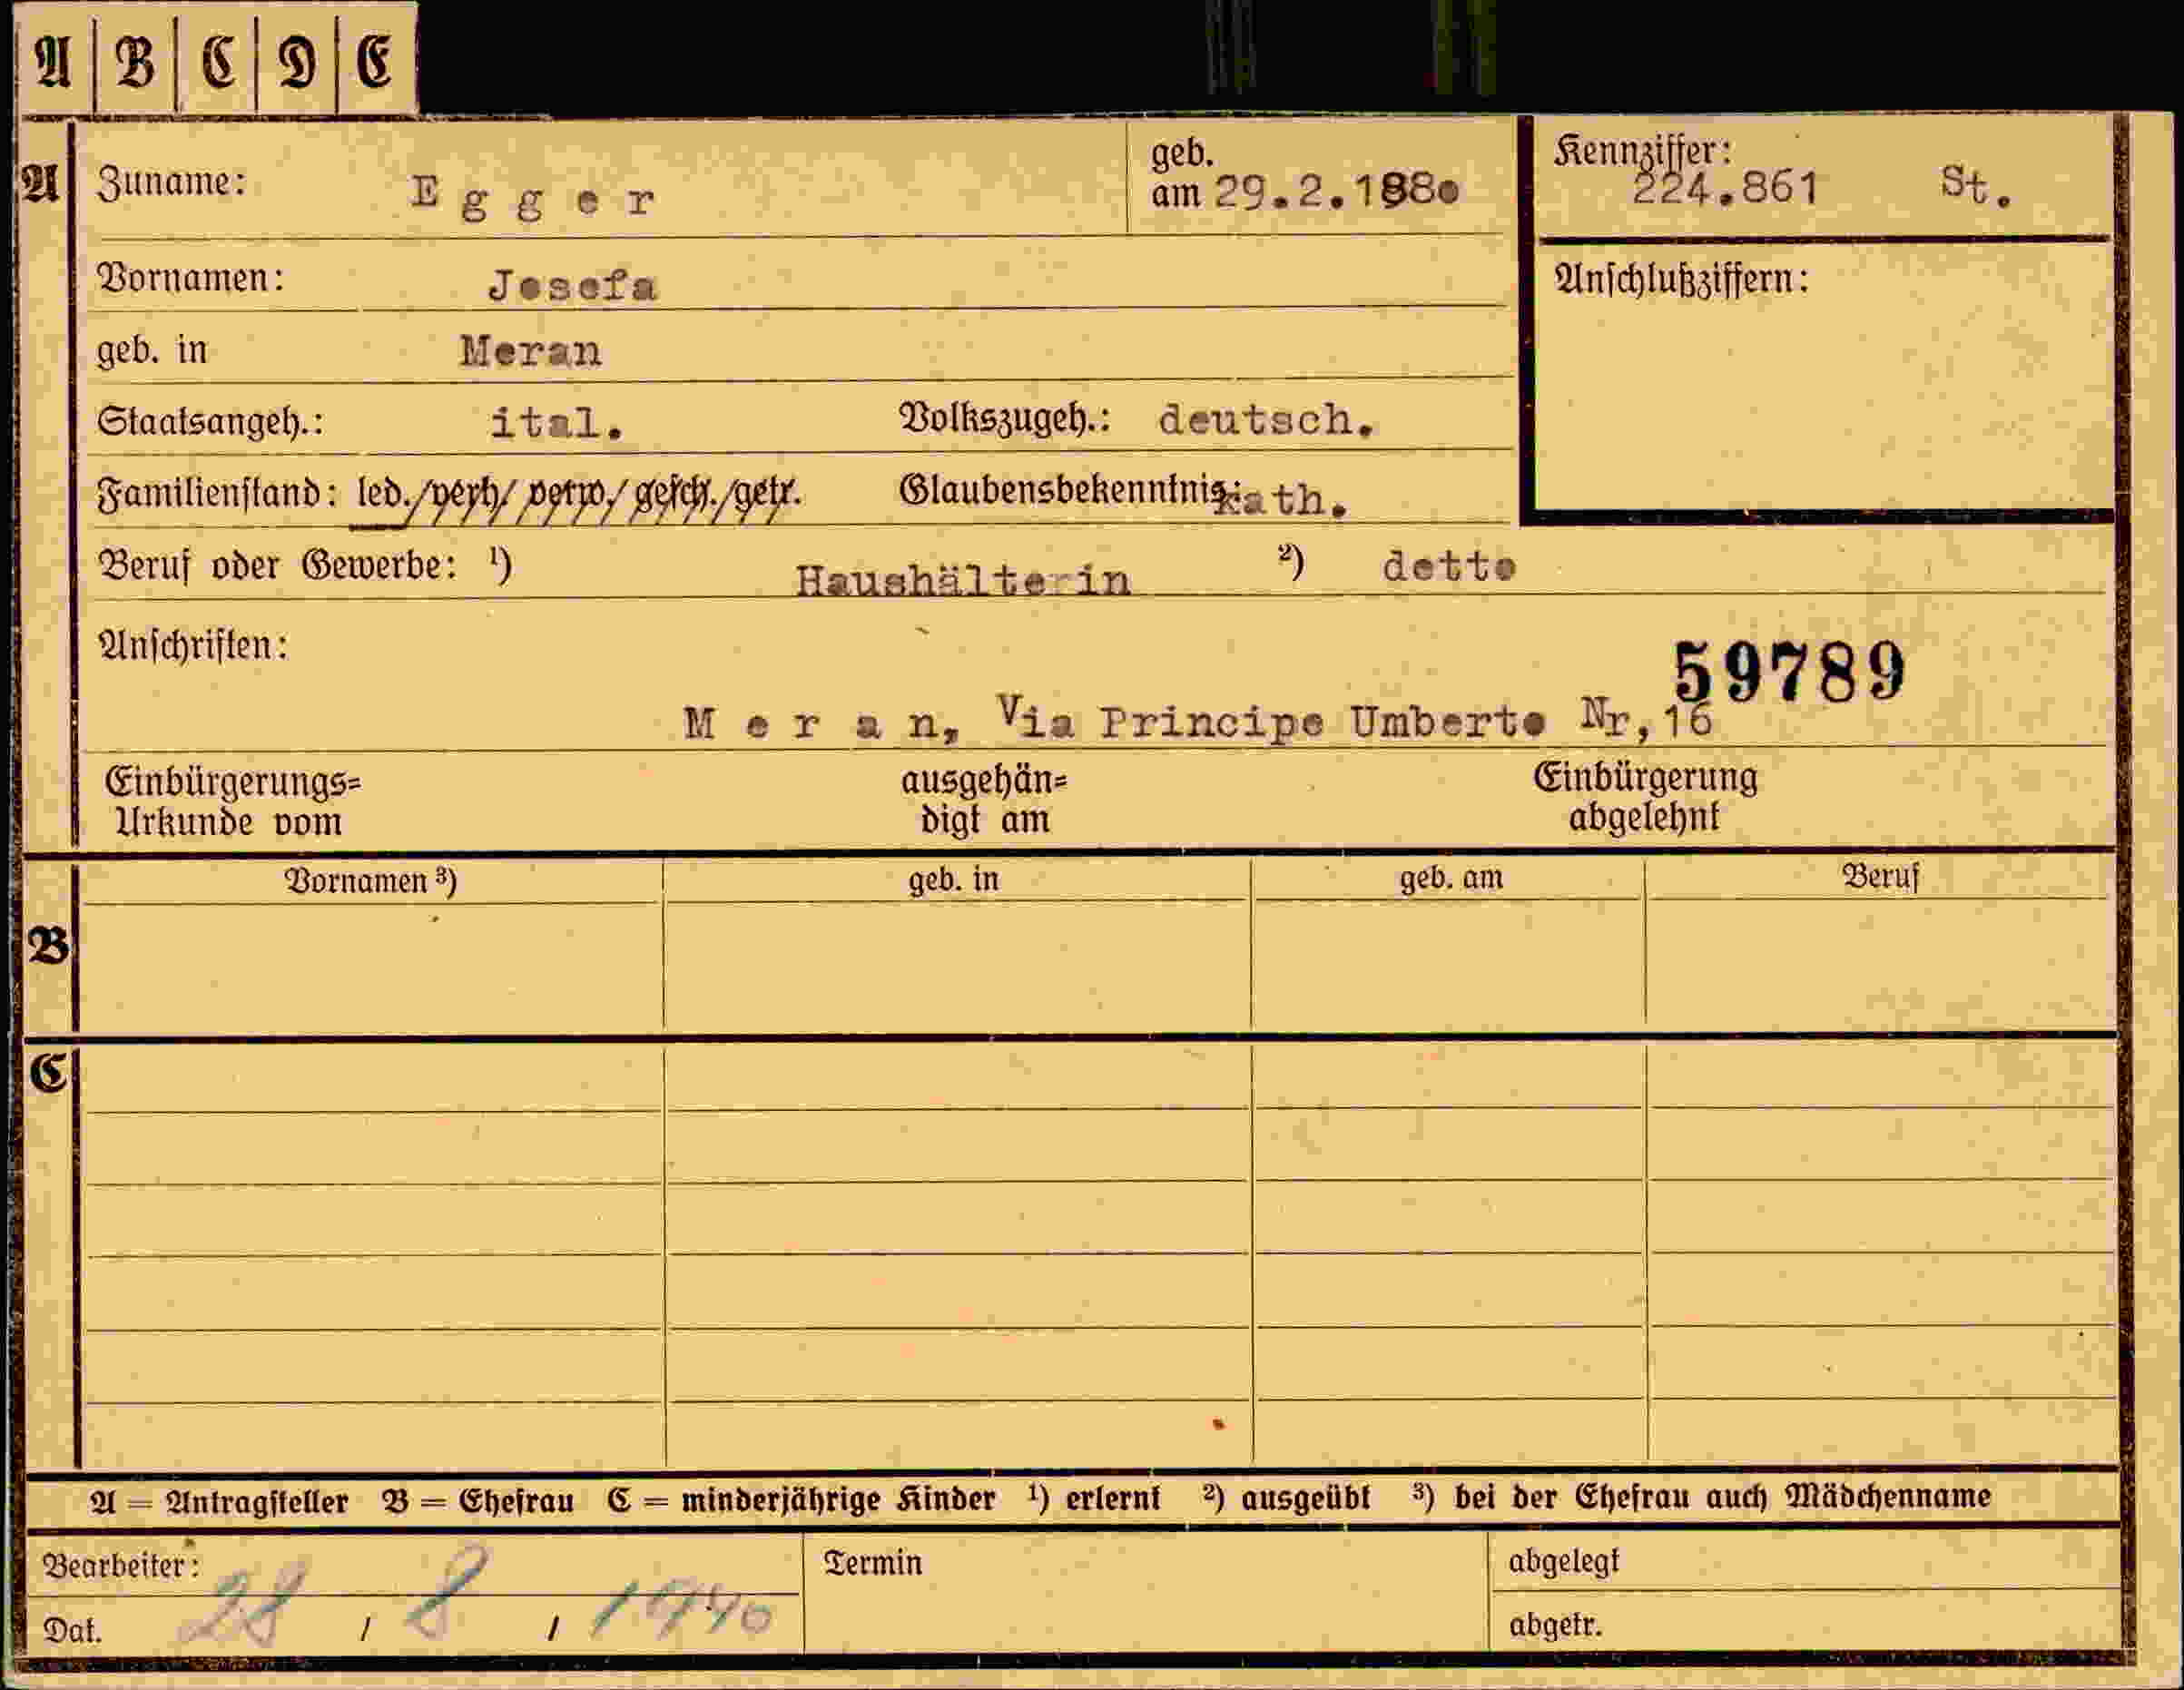 A B C D E
A Zuname: Egger geb. am 29.2.1880 Kennziffer: 224.861 St.
Vornamen: Josefa Anschlußziffern:
geb. in Meran
Staatsangeh.: ital. Volkszugeh.: deutsch.
Familienstand: led./verh/ verw./ gesch./getr. Glaubensbekenntnis: kath.
Beruf oder Gewerbe: ¹) Haushälterin ²) detto
Anschriften: 59789
Meran, Via Principe Umberto Nr,16
Einbürgerungs= ausgehän= Einbürgerung
Urkunde vom digt am abgelehnt
Vornamen ³) geb. in geb. am Beruf
B
C
A = Antragsteller B = Ehefrau C = minderjährige Kinder ¹) erlernt ²) ausgeübt ³) bei der Ehefrau auch Mädchenname
Bearbeiter: Termin abgelegt
Dat. 28 / 8 / 1940 abgetr.